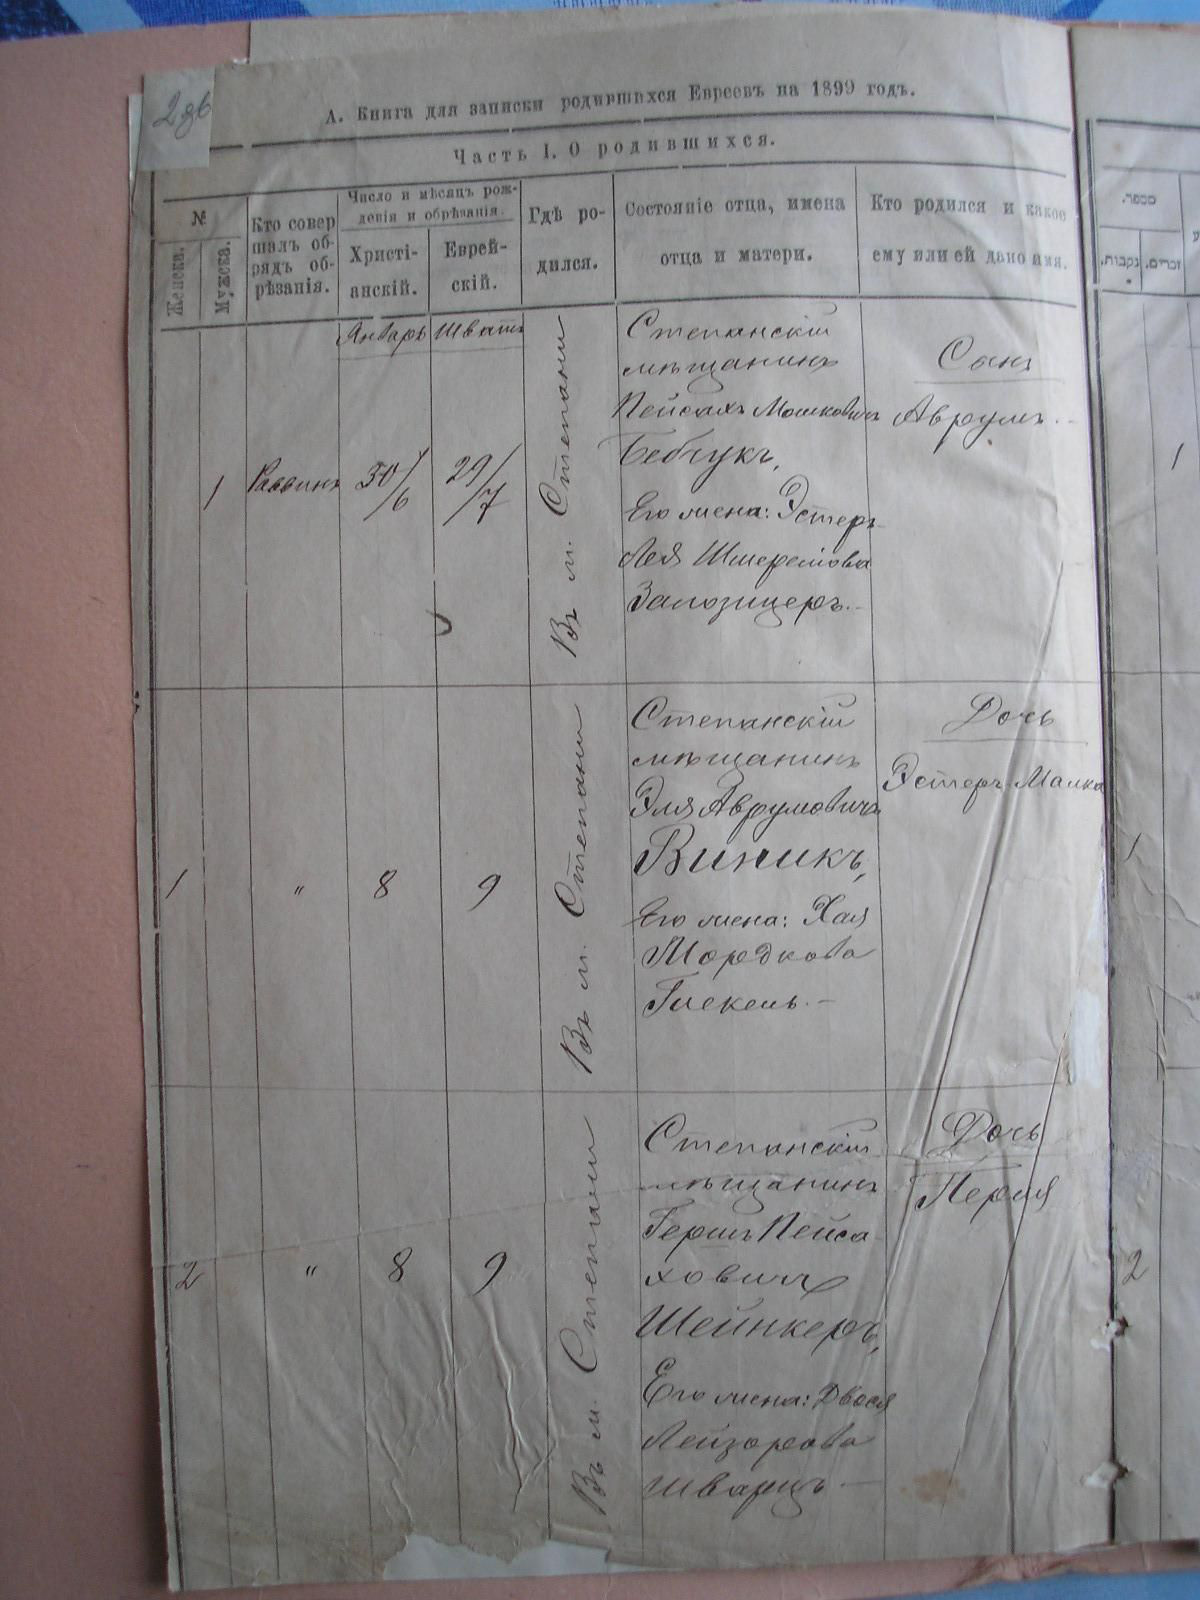 А. Книга для записки родившихся Евреевъ на 1899 годъ.
Часть I. О родившихся.
№
Женска.
Мужска.
Кто совер
шалъ об-
рядъ об-
рѣзанія.
Число и мѣсяцъ рож-
денія и обрѣзанія.
Христі-
анскій.
Еврей-
скій.
Гдѣ ро-
дился.
Состояніе отца, имена
отца и матери.
Кто родился и какое
ему или ей дано имя.
מספר.
נקבות.
זכרים.
Январь
Шватъ
1
Раввинъ
30/6
29/7
Въ м. Степани
Степанскій
мѣщанинъ
Пейсахъ Мошковичъ
Бебчукъ,
Его жена: Эстеръ
Лея Шмерелова
Залозицеръ.-
Сынъ
Аврумъ.-
1
1
"
8
9
Въ м. Степани
Степанскій
мѣщанинъ
Эля Аврумовичъ
Виникъ,
Его жена: Хая
Мордкова
Глекель.-
Дочь
Эстеръ Малка
1
2
"
8
9
Въ м. Степани
Степанскій
мѣщанинъ
Гершъ Пейса
ховичъ
Шейнкеръ,
Его жена: Двося
Лейзорова
Шварцъ.-
Дочь
Перля
2